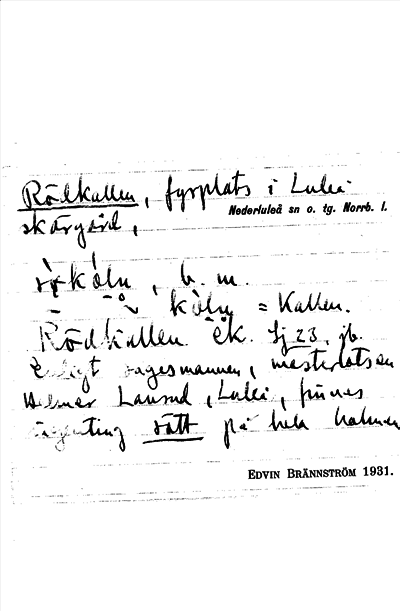 Rödkallen, fyrplats i Luleå
Nederluleå sn o. tg. Norrb. l.
skärgård,
b. m.
= Kallen.
Rödkallen ek. Sj 23. jb.
Enligt sagesmannen, mästerlotsen
Helmer Lansud, Luleå, finnes
ingenting rött på hela holmen
EDVIN BRÄNNSTRÖM 1931.